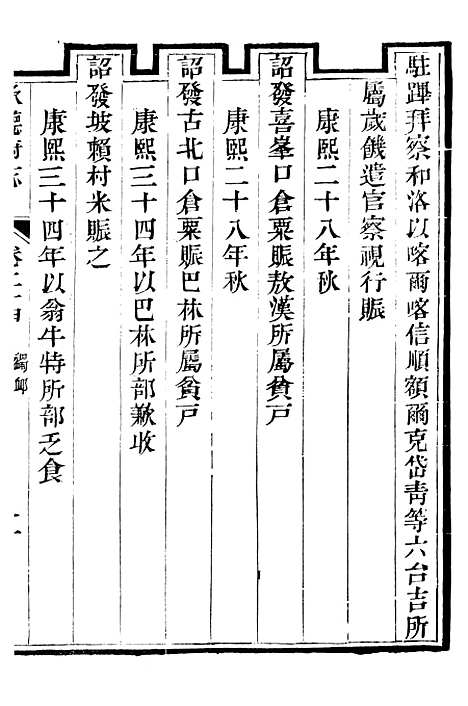 駐蹕拜察和洛以喀爾喀信順額爾克岱青等六台吉所
屬歲饑遣官察視行賑
康熙二十八年秋
詔發喜峯口倉粟賑敖漢所屬貧戸
康熙二十八年秋
詔發古北口倉粟賑巴林所屬貧戸
康熙三十四年以巴林所部歉收
詔發坡賴村米賑之
康熙三十四年以翁牛特所部乏食
蠲卹